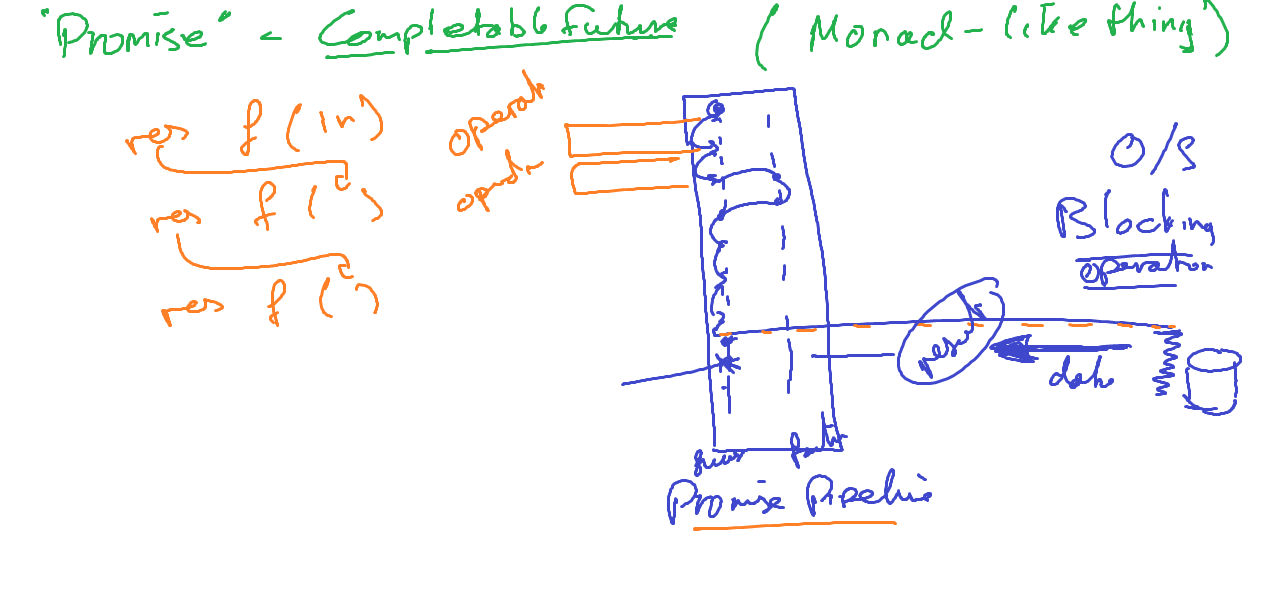 "Promise" - Completable Future ( Monad-like thing")
res f ( in )
res f ( )
res f ( )
operat
O/S
Blocking
operation
result
Promise Pipeline